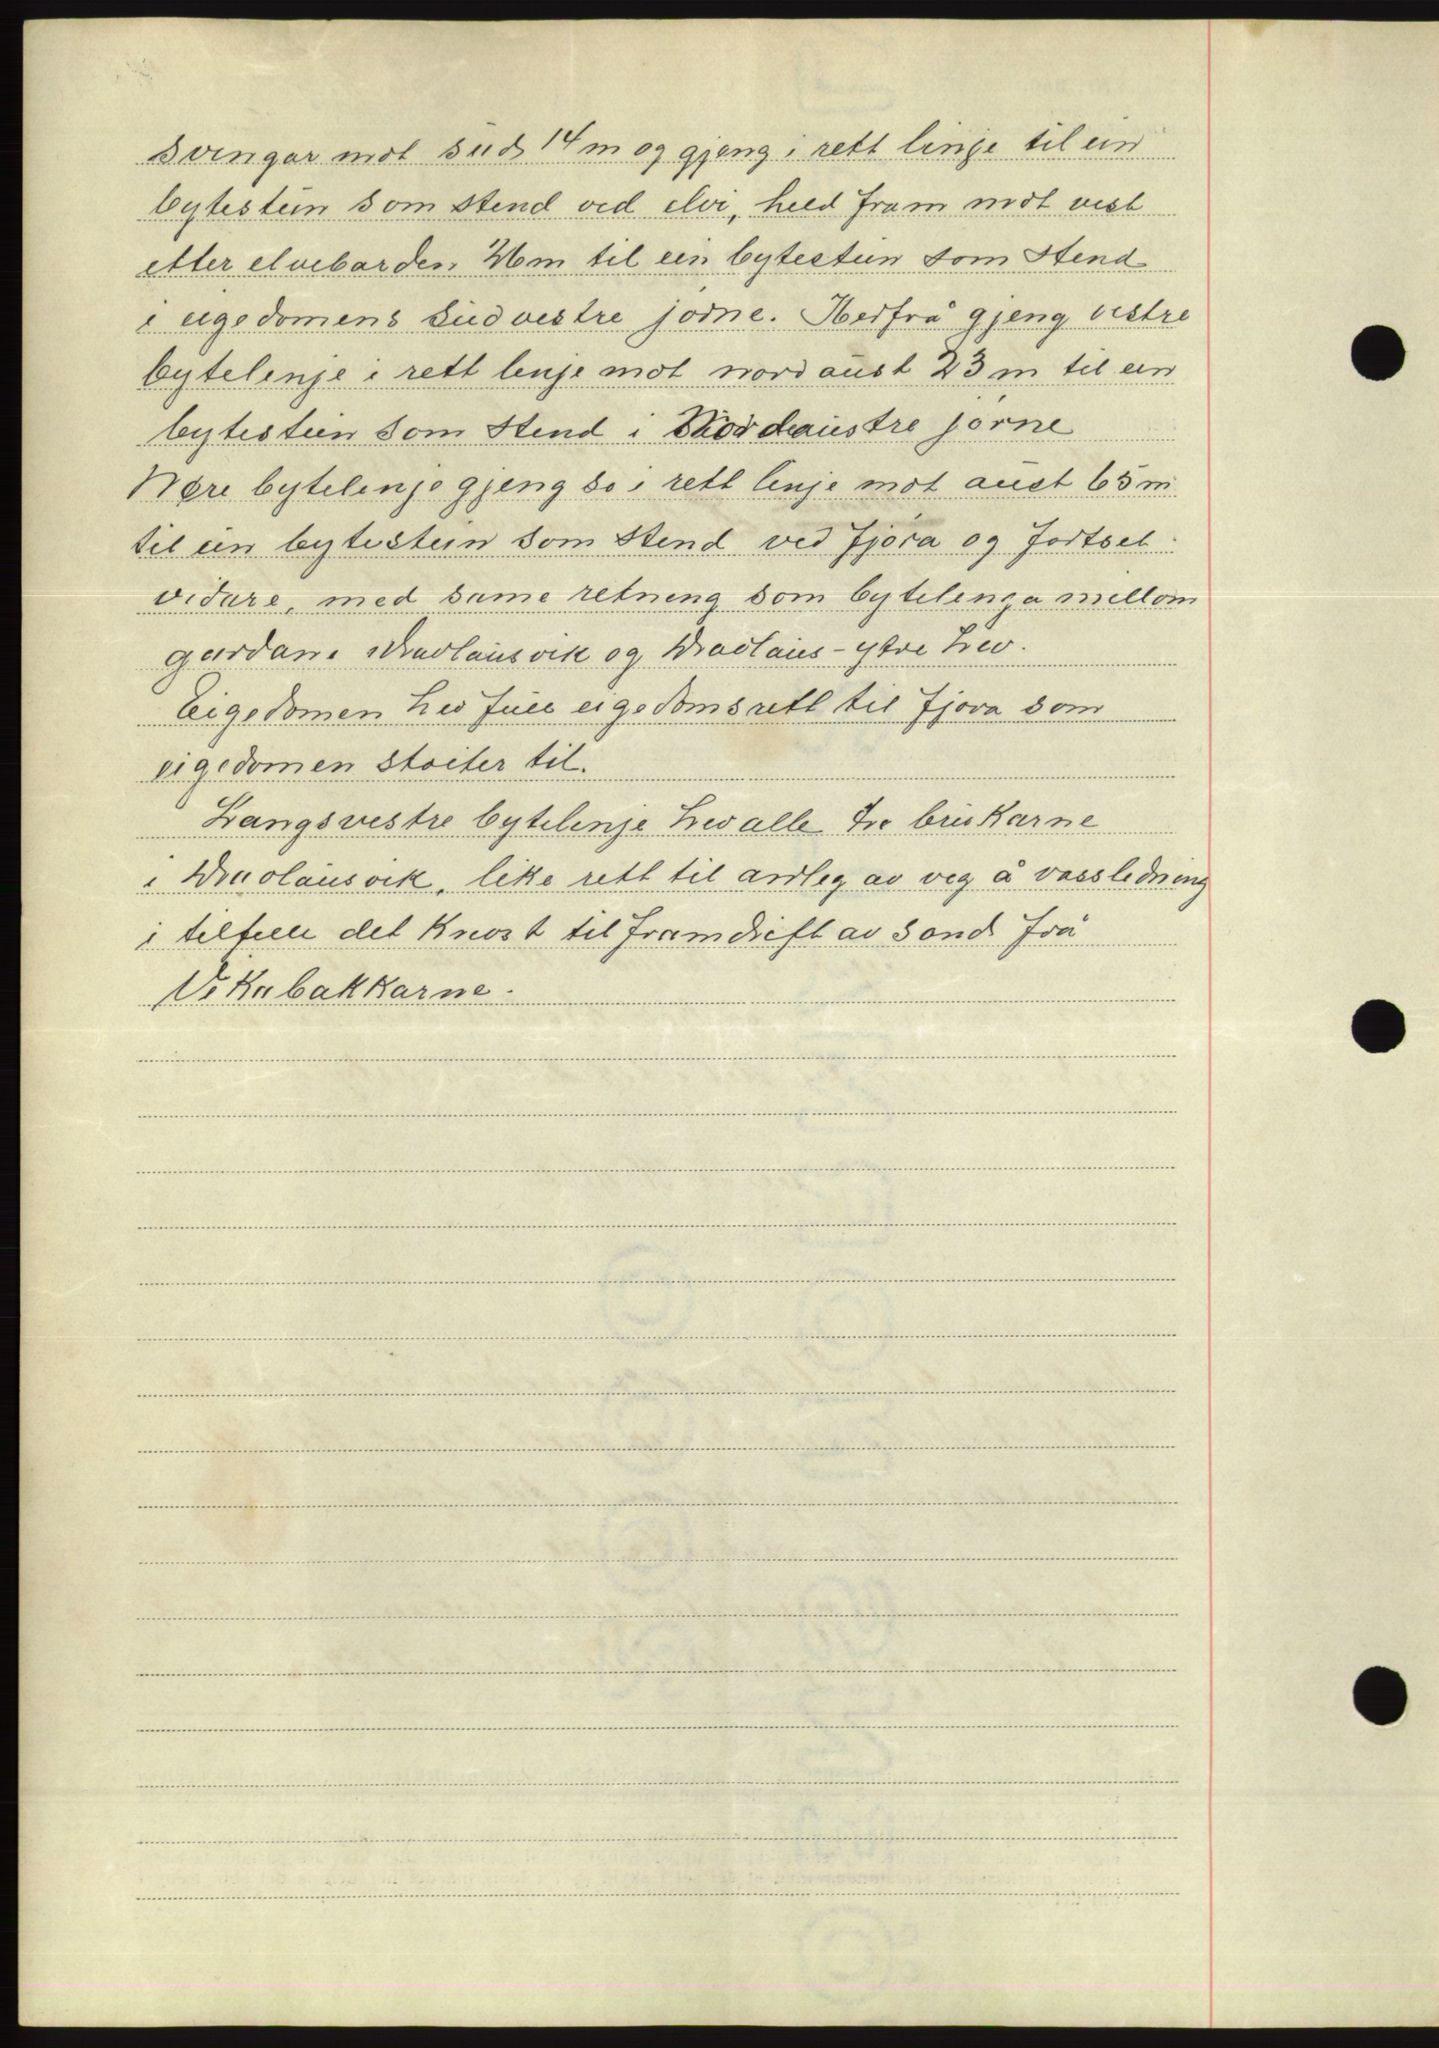 svingar mot süd 14 m og gjeng i rett linje til ein
bytestein som stend ved elvi, held fram mot vest
etter elvebarden 26 m til ein bytestein som stend
i eigedomens südvestre jørne. Herfrå gjeng vestre
bytelinje i rett linje mot nordaüst 23 m til ein
bytestein som stend i Nordaustre jørne
Nøre bytelinje gjeng so i rett linje mot aüst 65 m
til ein bytestein som stend ved fjøra og fortset
vidare, med same retning som bytelinga millom
gardane og ytre hev.
Eigedomen hev füll eigedomsrett til fjøra som
eigedomen støiter til.
Langs vestre bytelinje hev alle tre brükarne
i like rett til anleg av veg å vassledning
i tilfelle det Krevst til framdrift av sand frå
Vikabakkarne.